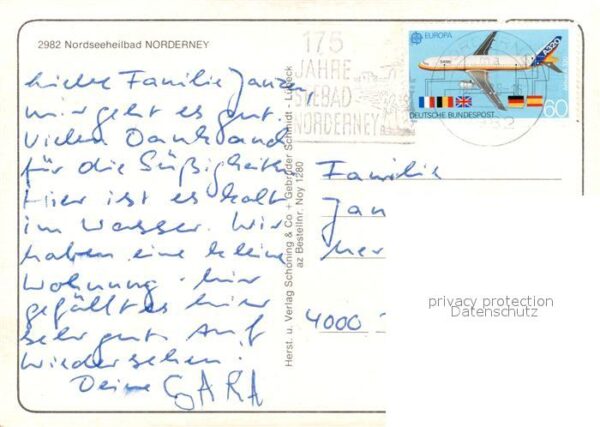 2982 Nordseeheilbad NORDERNEY
Liebe Familie Janzen,
mir geht es gut.
Vielen Dank auch
für die Süßigkeiten.
Hier ist es kalt
im Wasser. Wir
haben eine kleine
Wohnung. Mir
gefällt es hier
sehr gut. Auf
Wiedersehen!
Deine SARA
Herst. u. Verlag Schöning & Co + Gebrüder Schmidt - Lübeck
az Bestellnr. Noy 1280
175
JAHRE
SEEBAD
NORDERNEY
EUROPA
A320
60
DEUTSCHE BUNDESPOST
Familie
Jan
4000
privacy protection
Datenschutz